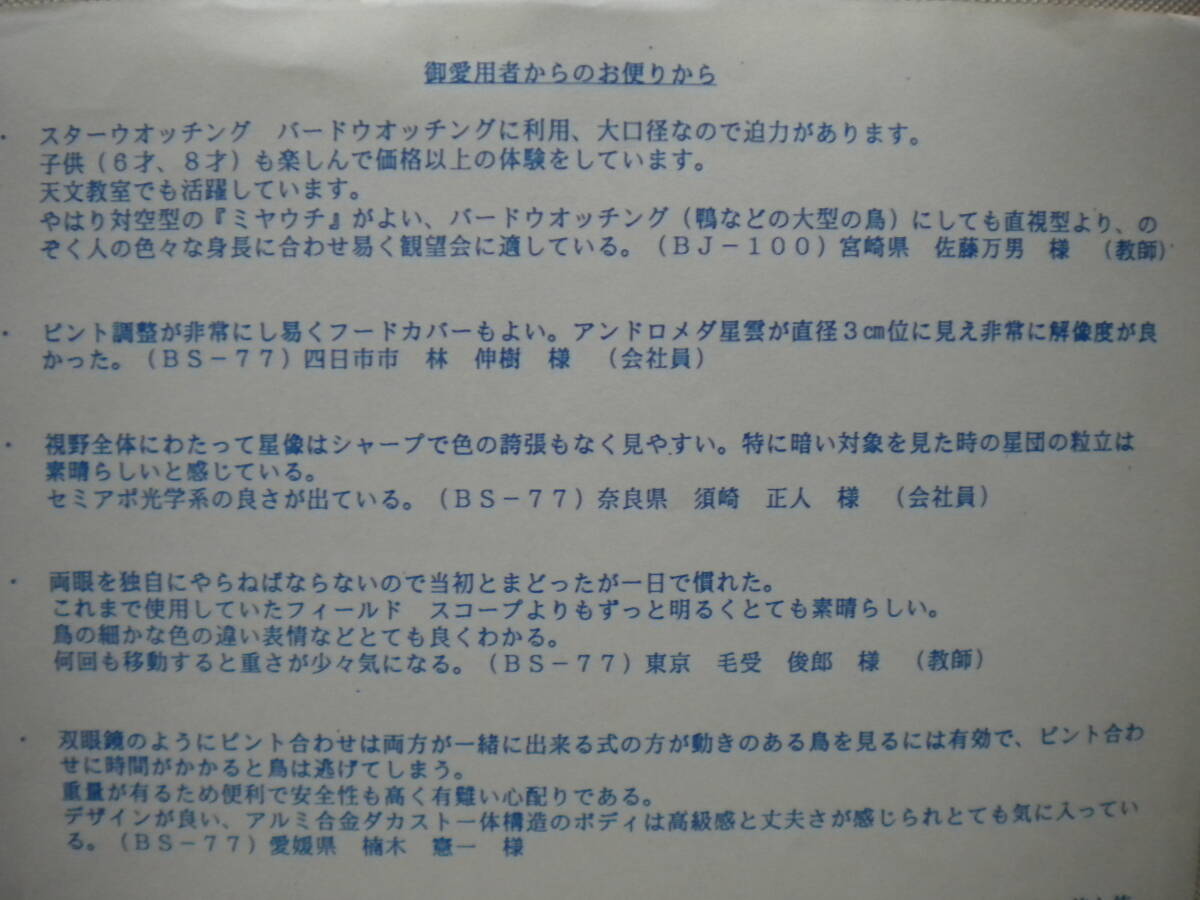 御愛用者からのお便りから
・ スターウオッチング　バードウオッチングに利用、大口径なので迫力があります。
子供（６才、８才）も楽しんで価格以上の体験をしています。
天文教室でも活躍しています。
やはり対空型の『ミヤウチ』がよい、バードウオッチング（鴨などの大型の鳥）にしても直視型より、の
ぞく人の色々な身長に合わせ易く観望会に適している。（ＢＪ－１００）宮崎県　佐藤万男　様　（教師）
・ ピント調整が非常にし易くフードカバーもよい。アンドロメダ星雲が直径３㎝位に見え非常に解像度が良
かった。（ＢＳ－７７）四日市市　林　伸樹　様　（会社員）
・ 視野全体にわたって星像はシャープで色の誇張もなく見やすい。特に暗い対象を見た時の星団の粒立は
素晴らしいと感じている。
セミアポ光学系の良さが出ている。（ＢＳ－７７）奈良県　須崎　正人　様　（会社員）
・ 両眼を独自にやらねばならないので当初とまどったが一日で慣れた。
これまで使用していたフィールド　スコープよりもずっと明るくとても素晴らしい。
鳥の細かな色の違い表情などとても良くわかる。
何回も移動すると重さが少々気になる。（ＢＳ－７７）東京　毛受　俊郎　様　（教師）
・ 双眼鏡のようにピント合わせは両方が一緒に出来る式の方が動きのある鳥を見るには有効で、ピント合わ
せに時間がかかると鳥は逃げてしまう。
重量が有るため便利で安全性も高く有難い心配りである。
デザインが良い、アルミ合金ダカスト一体構造のボディは高級感と丈夫さが感じられとても気に入ってい
る。（ＢＳ－７７）愛媛県　楠木　憲一　様